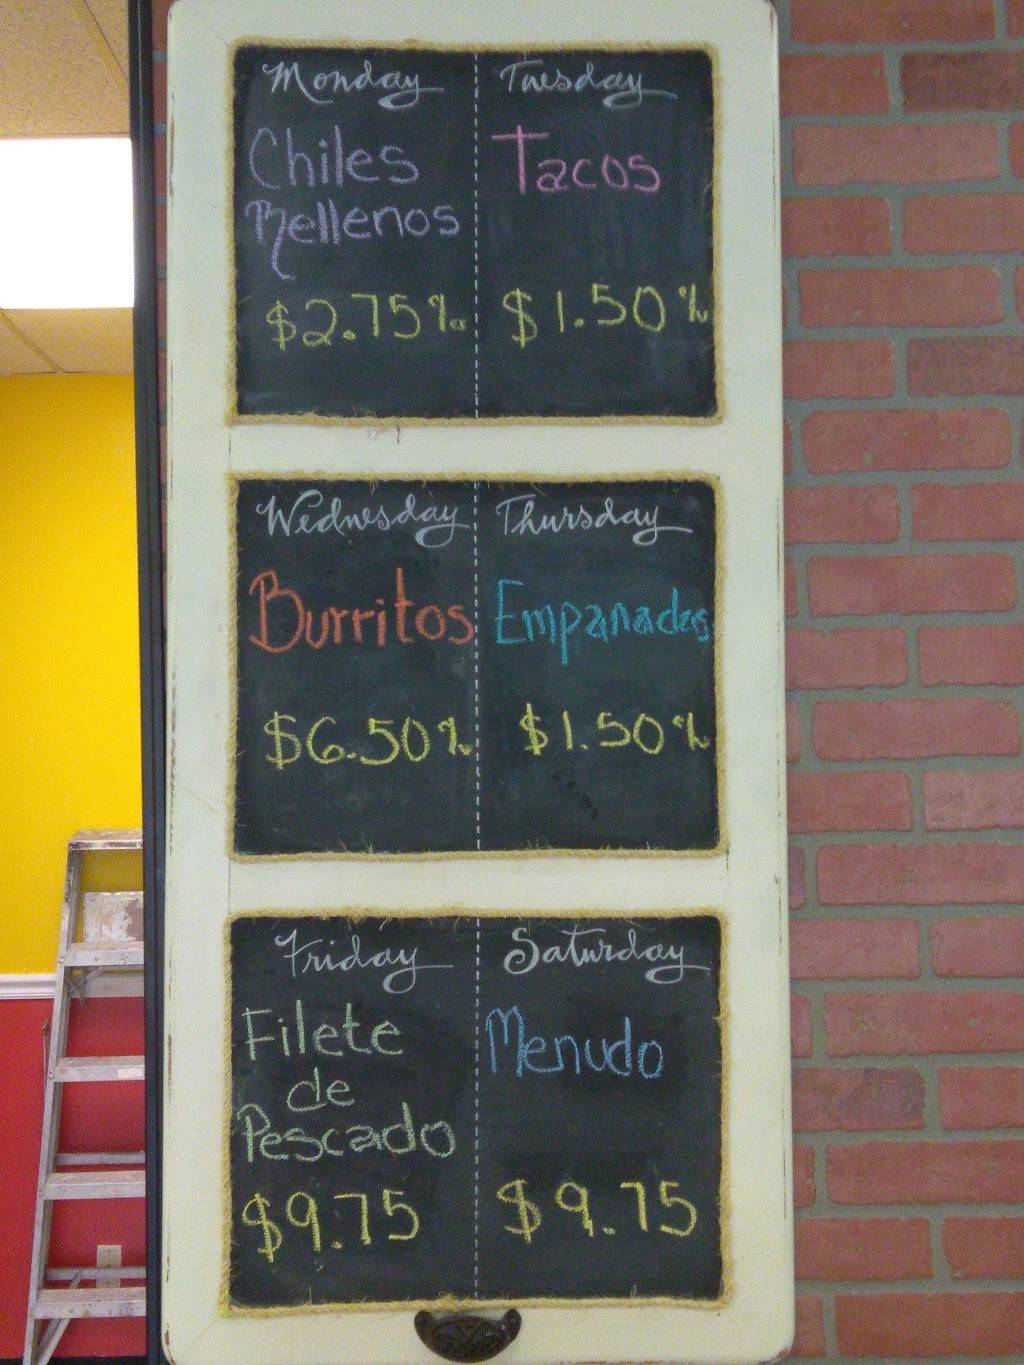 Monday
Chiles
Rellenos
$2.75
Tuesday
Tacos
$1.50
Wednesday
Burritos
$6.50
Thursday
Empanadas
$1.50
Friday
Filete
de
Pescado
$9.75
Saturday
Menudo
$9.75